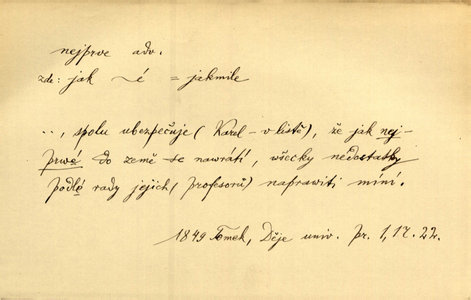 nejprve adv.
zde: jak ~é = jakmile
..., spolu ubezpečuje (Karel - v listě), že jak nej-
prvé do země se nawrátí, wšecky nedostatky
podlé rady jejich (profesorů) naprawiti míní.
1849 Tomek, Děje univ. pr. 1, 17. 22.